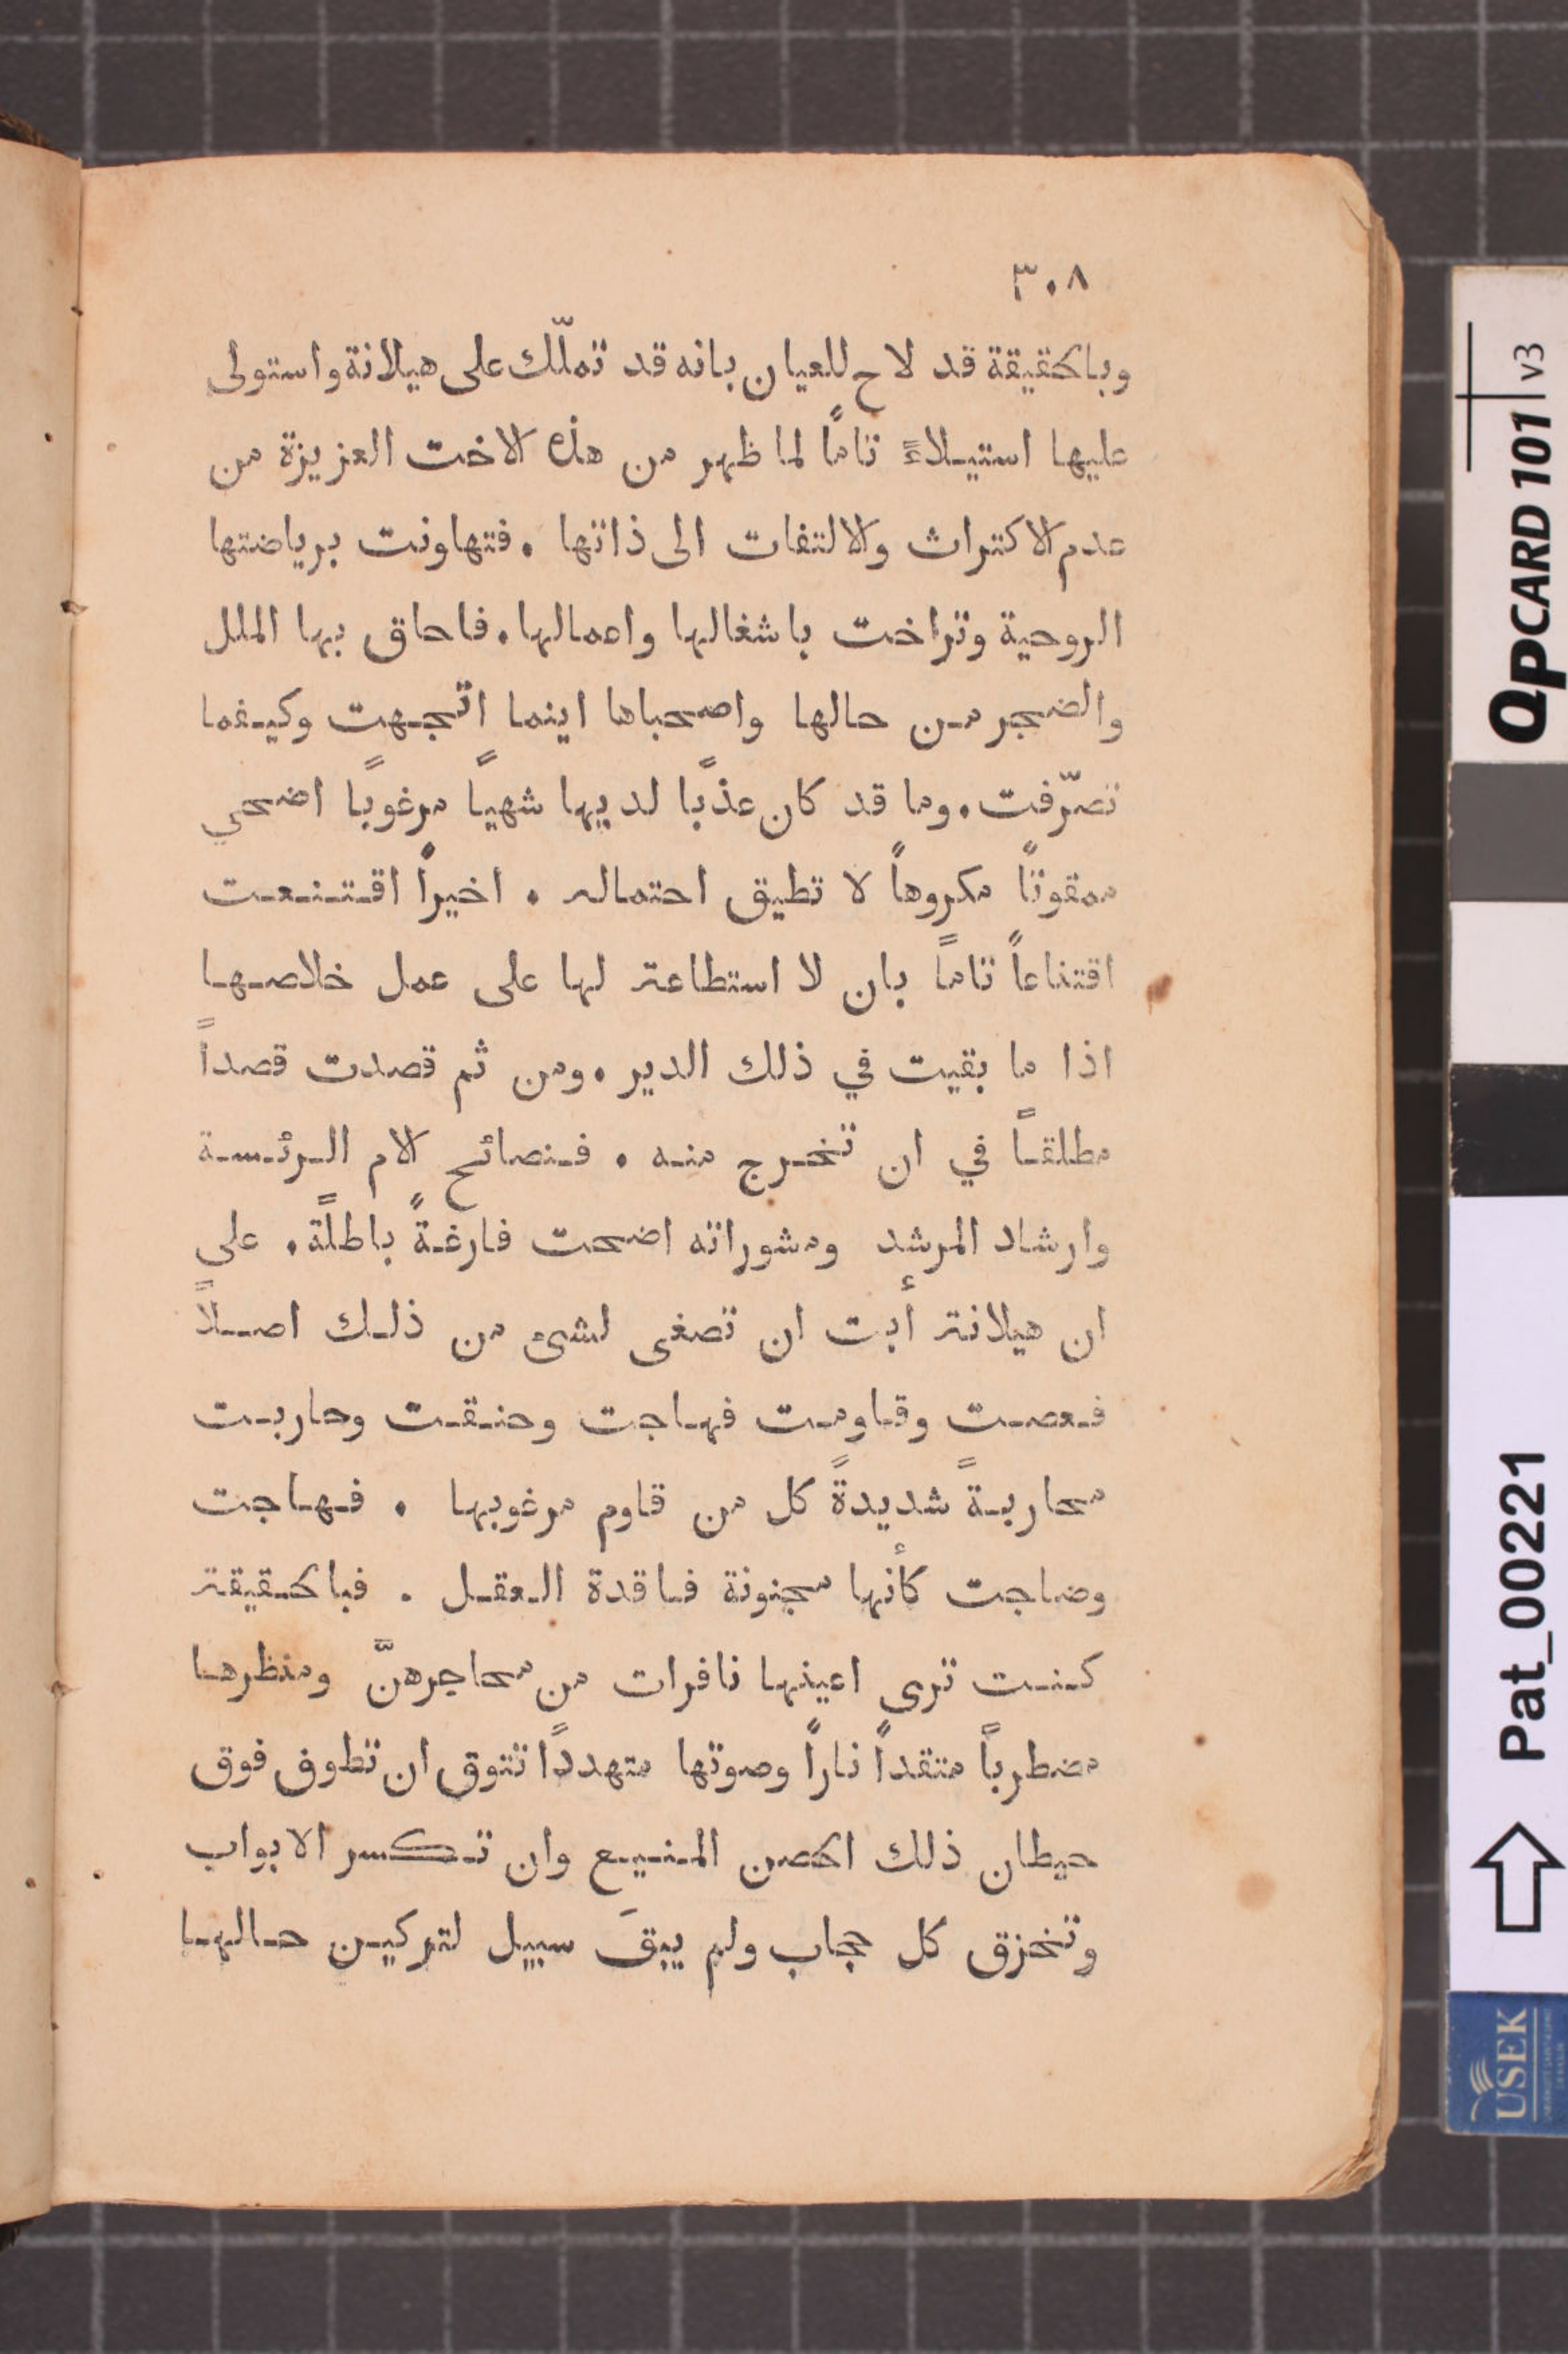 ٣٠٨
وبالحقيقة قد لاح للعيان بانه قد تملّك على هيلانة واستولى
عليها استيلاءً تاماً لما ظهر من هذه الاخت العزيزة من
عدم الاكتراث والالتفات الى ذاتها . فتهاونت برياضتها
الروحية وتراخت باشغالها واعمالها . فاحاق بها الملل
والضجر من حالها واصحباها اينما اتجهت وكيفما
تصرّفت . وما قد كان عذبًا لديها شهيًا مرغوبًا اضحي
ممقوتاً مكروهاً لا تطيق احتماله . اخيراً اقتنعت
اقتناعاً تاماً بان لا استطاعة لها على عمل خلاصها
اذا ما بقيت في ذلك الدير . ومن ثم قصدت قصداً
مطلقاً في ان تخرج منه . فنصائح الام الرئسة
وارشاد المرشد ومشوراته اضحت فارغةً باطلةً . على
ان هيلانة أبت ان تصغى لشئ من ذلك اصلاً
فعصت وقاومت فهاجت وحنقت وحاربت
محاربةً شديدةً كل من قاوم مرغوبها . فهاجت
وضاجت كأنها مجنونة فاقدة العقل . فبالحقيقة
كنت ترى اعينها نافرات من محاجرهنّ ومنظرها
مضطرباً متقداً ناراً وصوتها متهدداً تتوق ان تطوف فوق
حيطان ذلك الحصن المنيع وان تكسر الابواب
وتخزق كل حجاب ولم يبقَ سبيل لتركين حالها
QPCARD 101 v3
Pat_00221
USEK